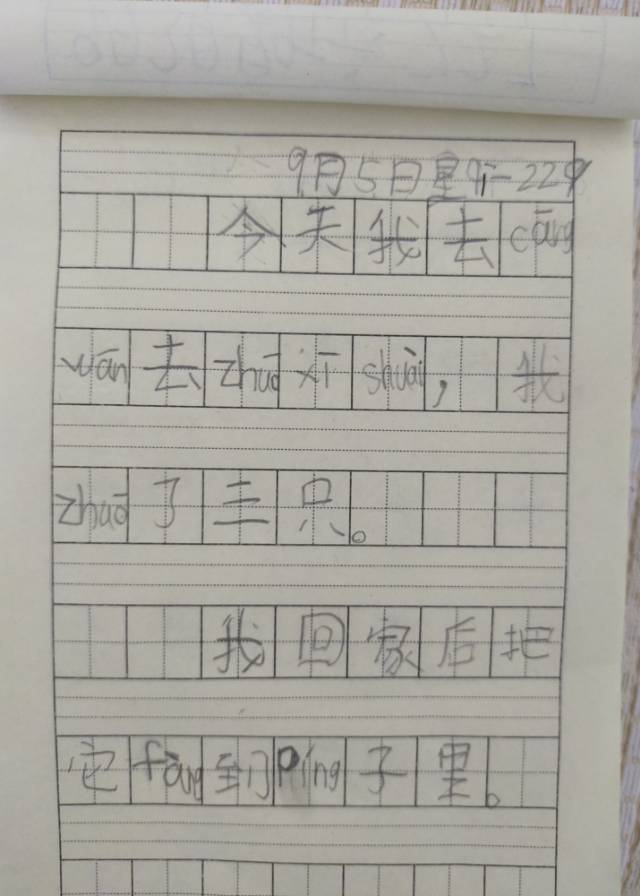 9月5日星期一229
今天我去cāng
wán去zhuō xī shuài，我
zhuō了三只。
我回家后把
它fàng到píng子里。